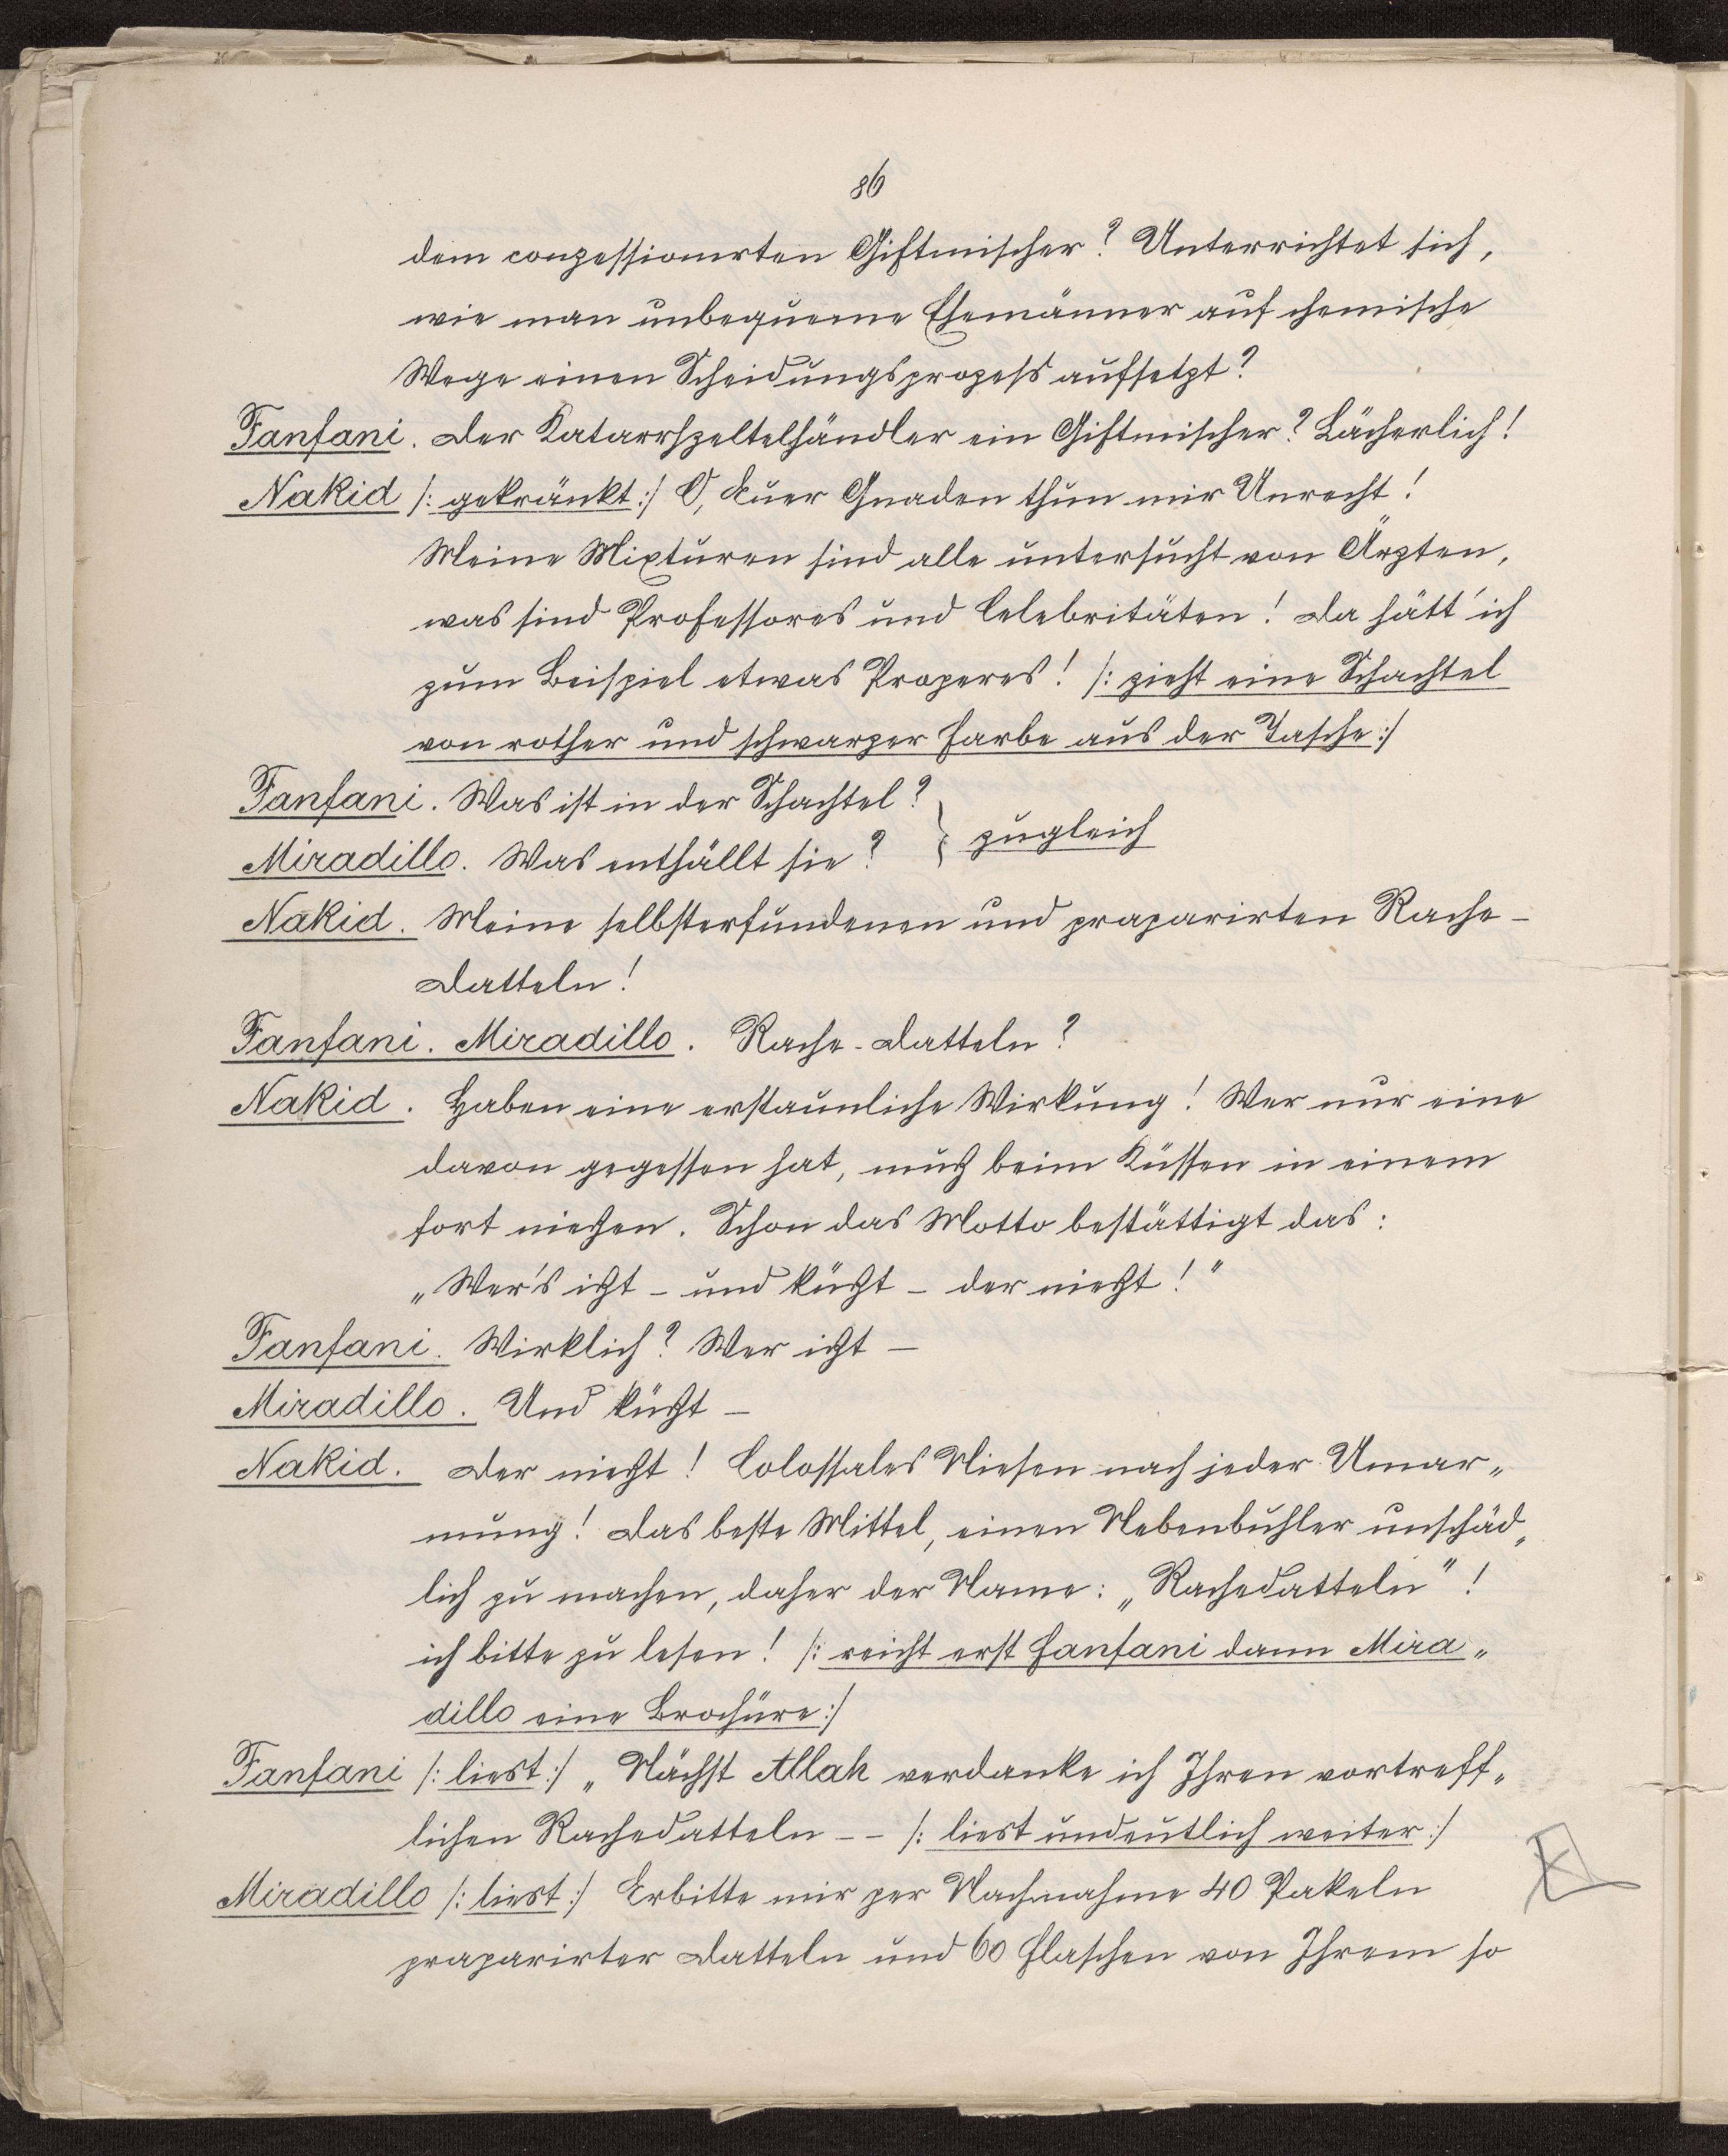 86
dem conzessionirten Giftmischer? Unterrichtet sich,
wie man unbequeme Ehemänner auf chemische
Wege einen Scheidungsprozess aufsetzt?
Fanfani. Der Katarrhzeltelhändler ein Giftmischer? Lächerlich!
Nakid /: gekränkt :/ O, Euer Gnaden thun mir Unrecht!
Meine Mixturen sind alle untersucht von Ärzten,
was sind Professores und Celebritäten! Da hätt' ich
zum Beispiel etwas Properes! /: zieht eine Schachtel
von rother und schwarzer Farbe aus der Tasche :/
Fanfani. Was ist in der Schachtel?
Miradillo. Was enthällt sie? } zugleich
Nakid. Meine selbsterfundenen und praparirten Rache-
Datteln!
Fanfani. Miradillo. Rache-Datteln?
Nakid. Haben eine erstaunliche Wirkung! Wer nur eine
davon gegessen hat, muß beim Küssen in einem
fort nießen. Schon das Motto bestättigt das:
„Wer's ißt – und küßt – der nießt!"
Fanfani. Wirklich? Wer ißt –
Miradillo. Und küßt –
Nakid. Der nießt! Colossales Niesen nach jeder Umar„
mung! Das beste Mittel, einen Nebenbuhler unschäd„
lich zu machen, daher der Name: „Rachedatteln"!
ich bitte zu lesen! /: reicht erst Fanfani dann Mira„
dillo eine Brochüre :/
Fanfani /: liest :/ „Nächst Allah verdanke ich Ihren vortreff„
lichen Rachedatteln – – /: liest undeutlich weiter :/
Miradillo /: liest :/ Erbitte mir per Nachnahme 40 Pakeln
praparirter Datteln und 60 Flaschen von Ihrem so